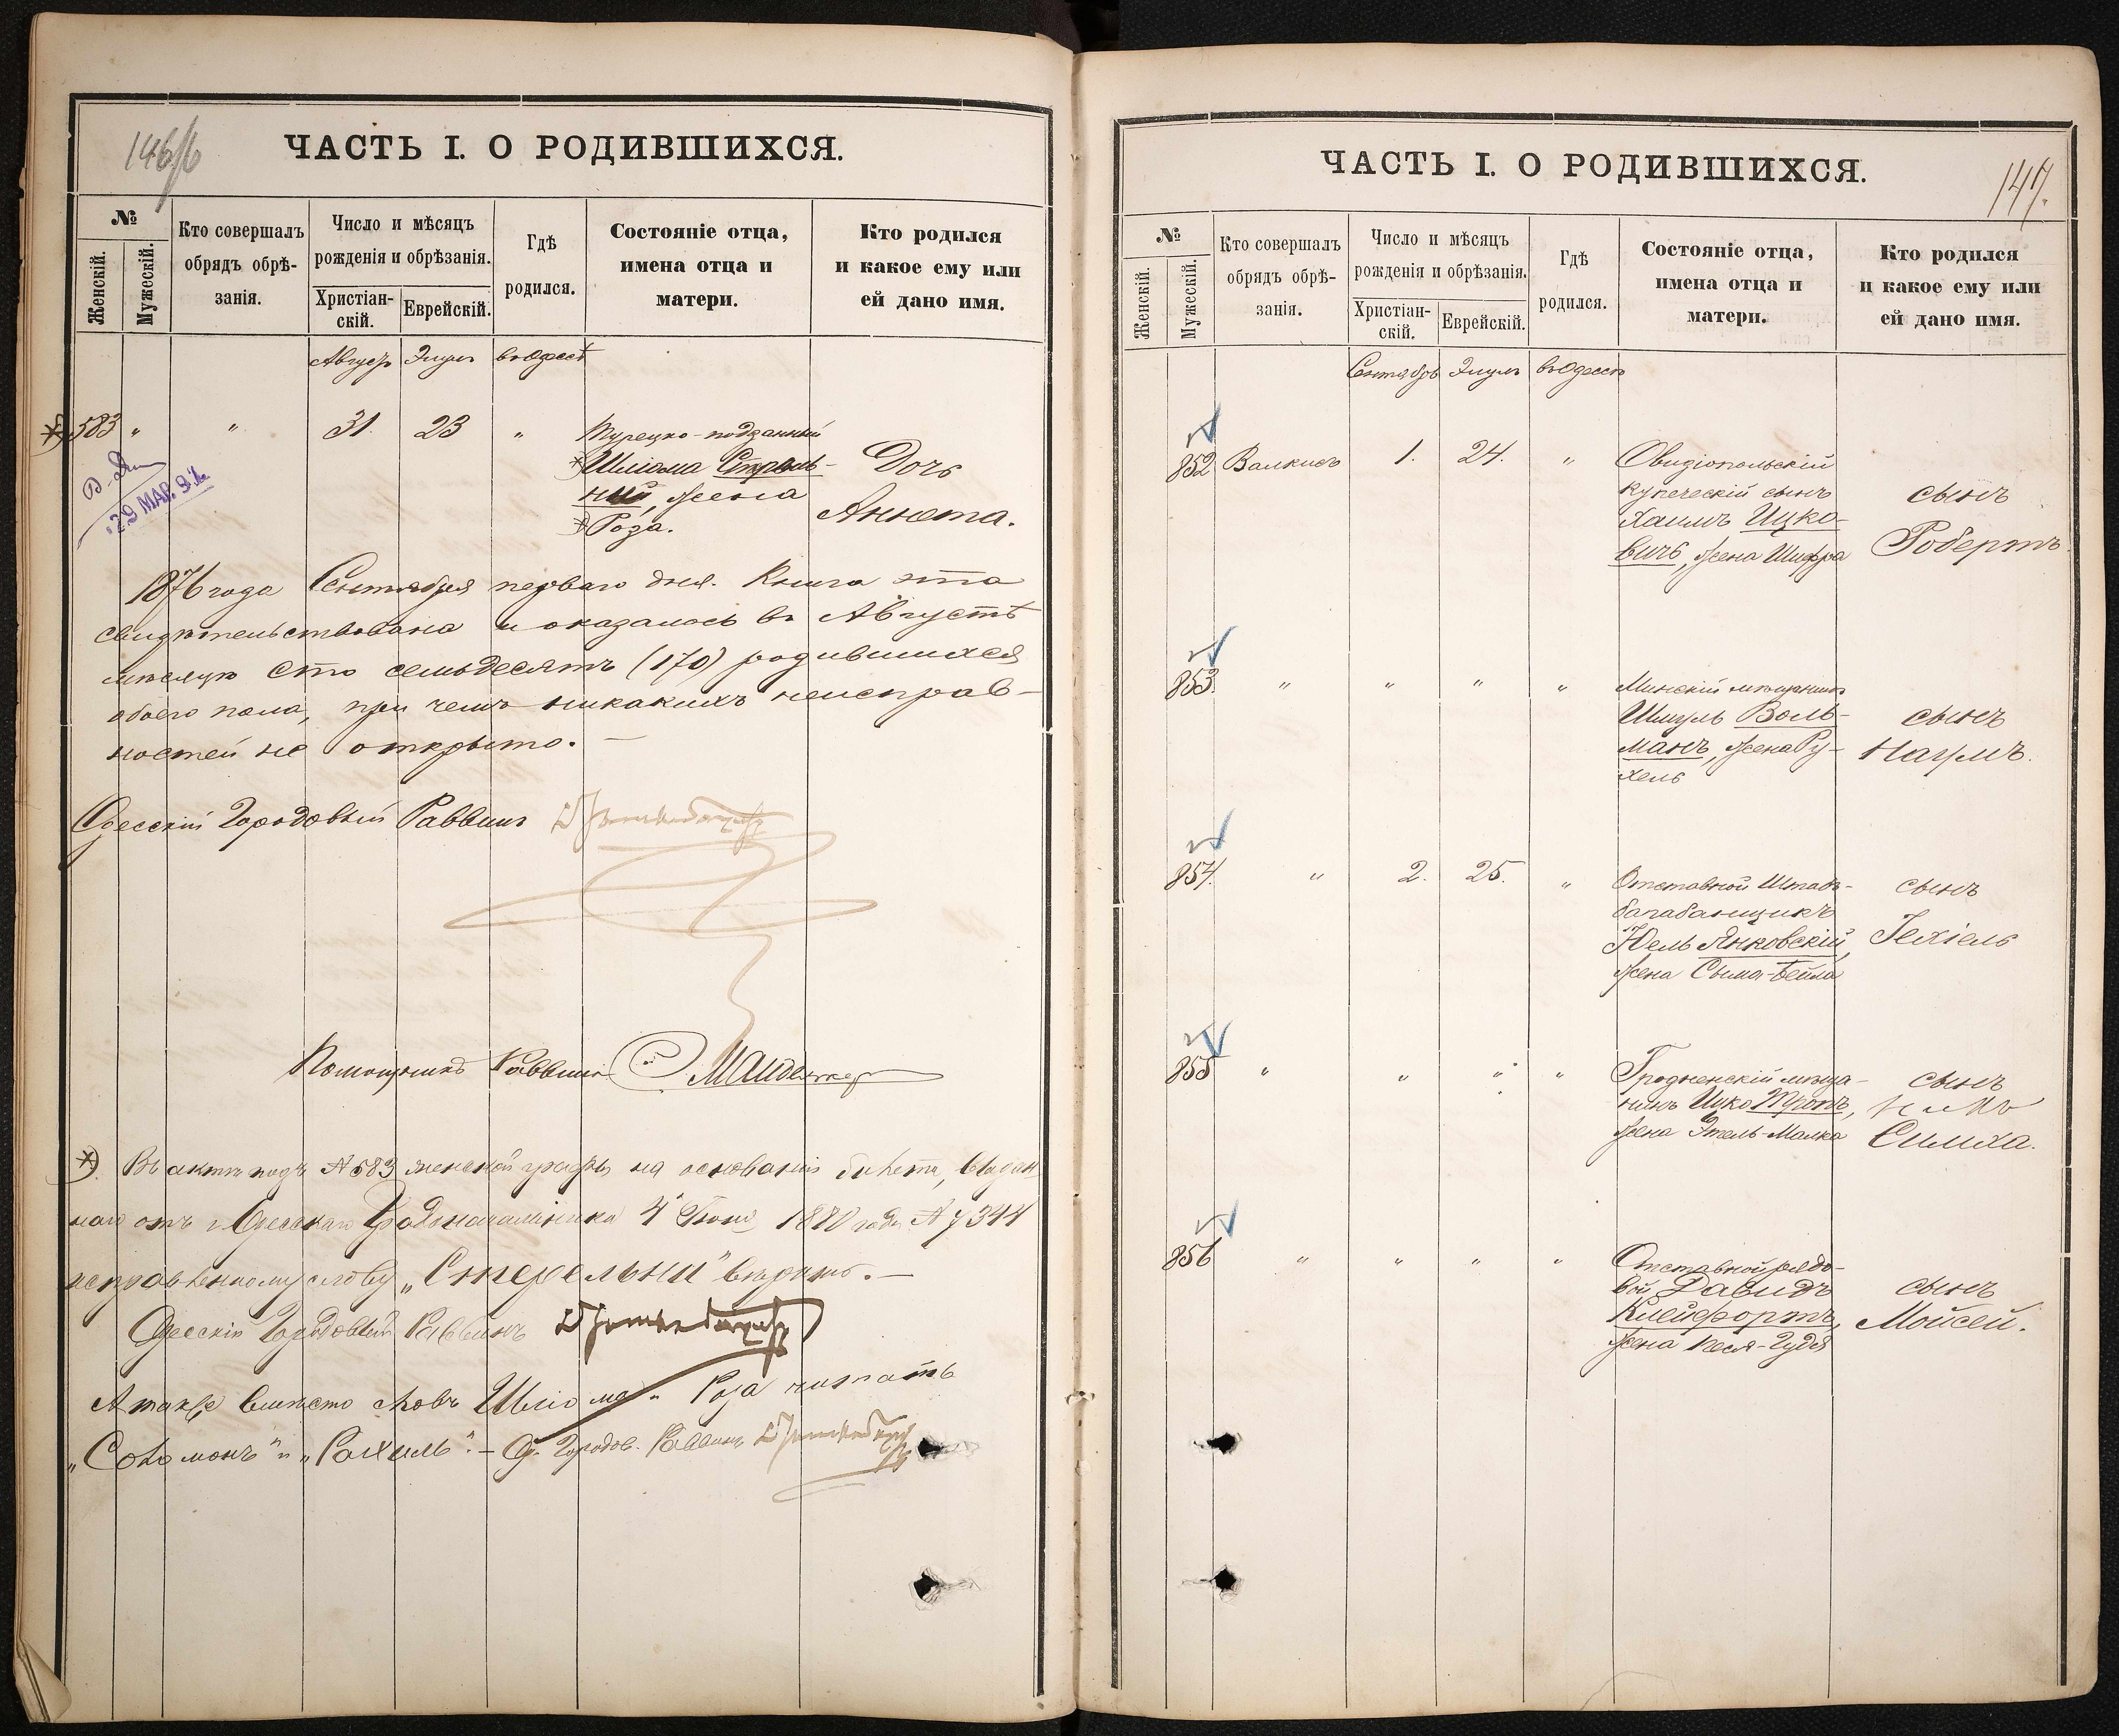 146/б
ЧАСТЬ I. О РОДИВШИХСЯ.
№
Женскій.
Мужескій.
Кто совершалъ
обрядъ обрѣ-
занія.
Число и мѣсяцъ
рожденія и обрѣзанія.
Христіан-
скій.
Еврейскій.
Гдѣ
родился.
Состояніе отца,
имена отца и
матери.
Кто родился
и какое ему или
ей дано имя.
Августъ Элулъ въ Одессѣ
583 " " 31. 23 "
Турецко-подданный
Шліома Стрель-
ний, жена
Роза.
Дочь
Анюта.
29 МАР. 94
1876 года Сентября перваго дня. Книга эта
свидѣтельствована и оказалось въ Августѣ
мѣсяцѣ сто семьдесятъ (170) родившихся
обоего пола, при чемъ никакихъ неисправ-
ностей не открыто. —
Одесскій Городовый Раввинъ
Помощникъ Раввина
*) Въ актѣ подъ № 583 женской графы на основаніи билета, выдан-
наго отъ г. Одесскаго Градоначальника 4 Іюня 1880 года № 7344
исправленному слову „Стерельни" вѣрить. —
Одесскій Городовый Раввинъ
А также вмѣсто словъ Шліома и Роза читать
„Соломонъ" и „Рахиль". — Од. Городов. Раввинъ
147.
ЧАСТЬ I. О РОДИВШИХСЯ.
№
Женскій.
Мужескій.
Кто совершалъ
обрядъ обрѣ-
занія.
Число и мѣсяцъ
рожденія и обрѣзанія.
Христіан-
скій.
Еврейскій.
Гдѣ
родился.
Состояніе отца,
имена отца и
матери.
Кто родился
и какое ему или
ей дано имя.
Сентябрь Элулъ въ Одессѣ
852 Валкисъ 1. 24. "
Овидіопольскій
купеческій сынъ
Хаимъ Ицко-
вичъ, жена Шифра
сынъ
Робертъ
853. " " " "
Минскій мѣщанинъ
Шмуль Воль-
манъ, жена Ру-
хель
сынъ
Наумъ.
854. " 2. 25. "
Отставной Штабъ-
барабанщикъ
Юель Янковскій,
жена Сыма-Бейла
сынъ
Іехіель
855 " " " "
Гродненскій мѣща-
нинъ Ицко Тропъ,
жена Этель-Малка
сынъ
Симха.
856 " " " "
Отставной рядо-
вой Давидъ
Клейфортъ,
жена Песя-Гудя
сынъ
Мойсей.